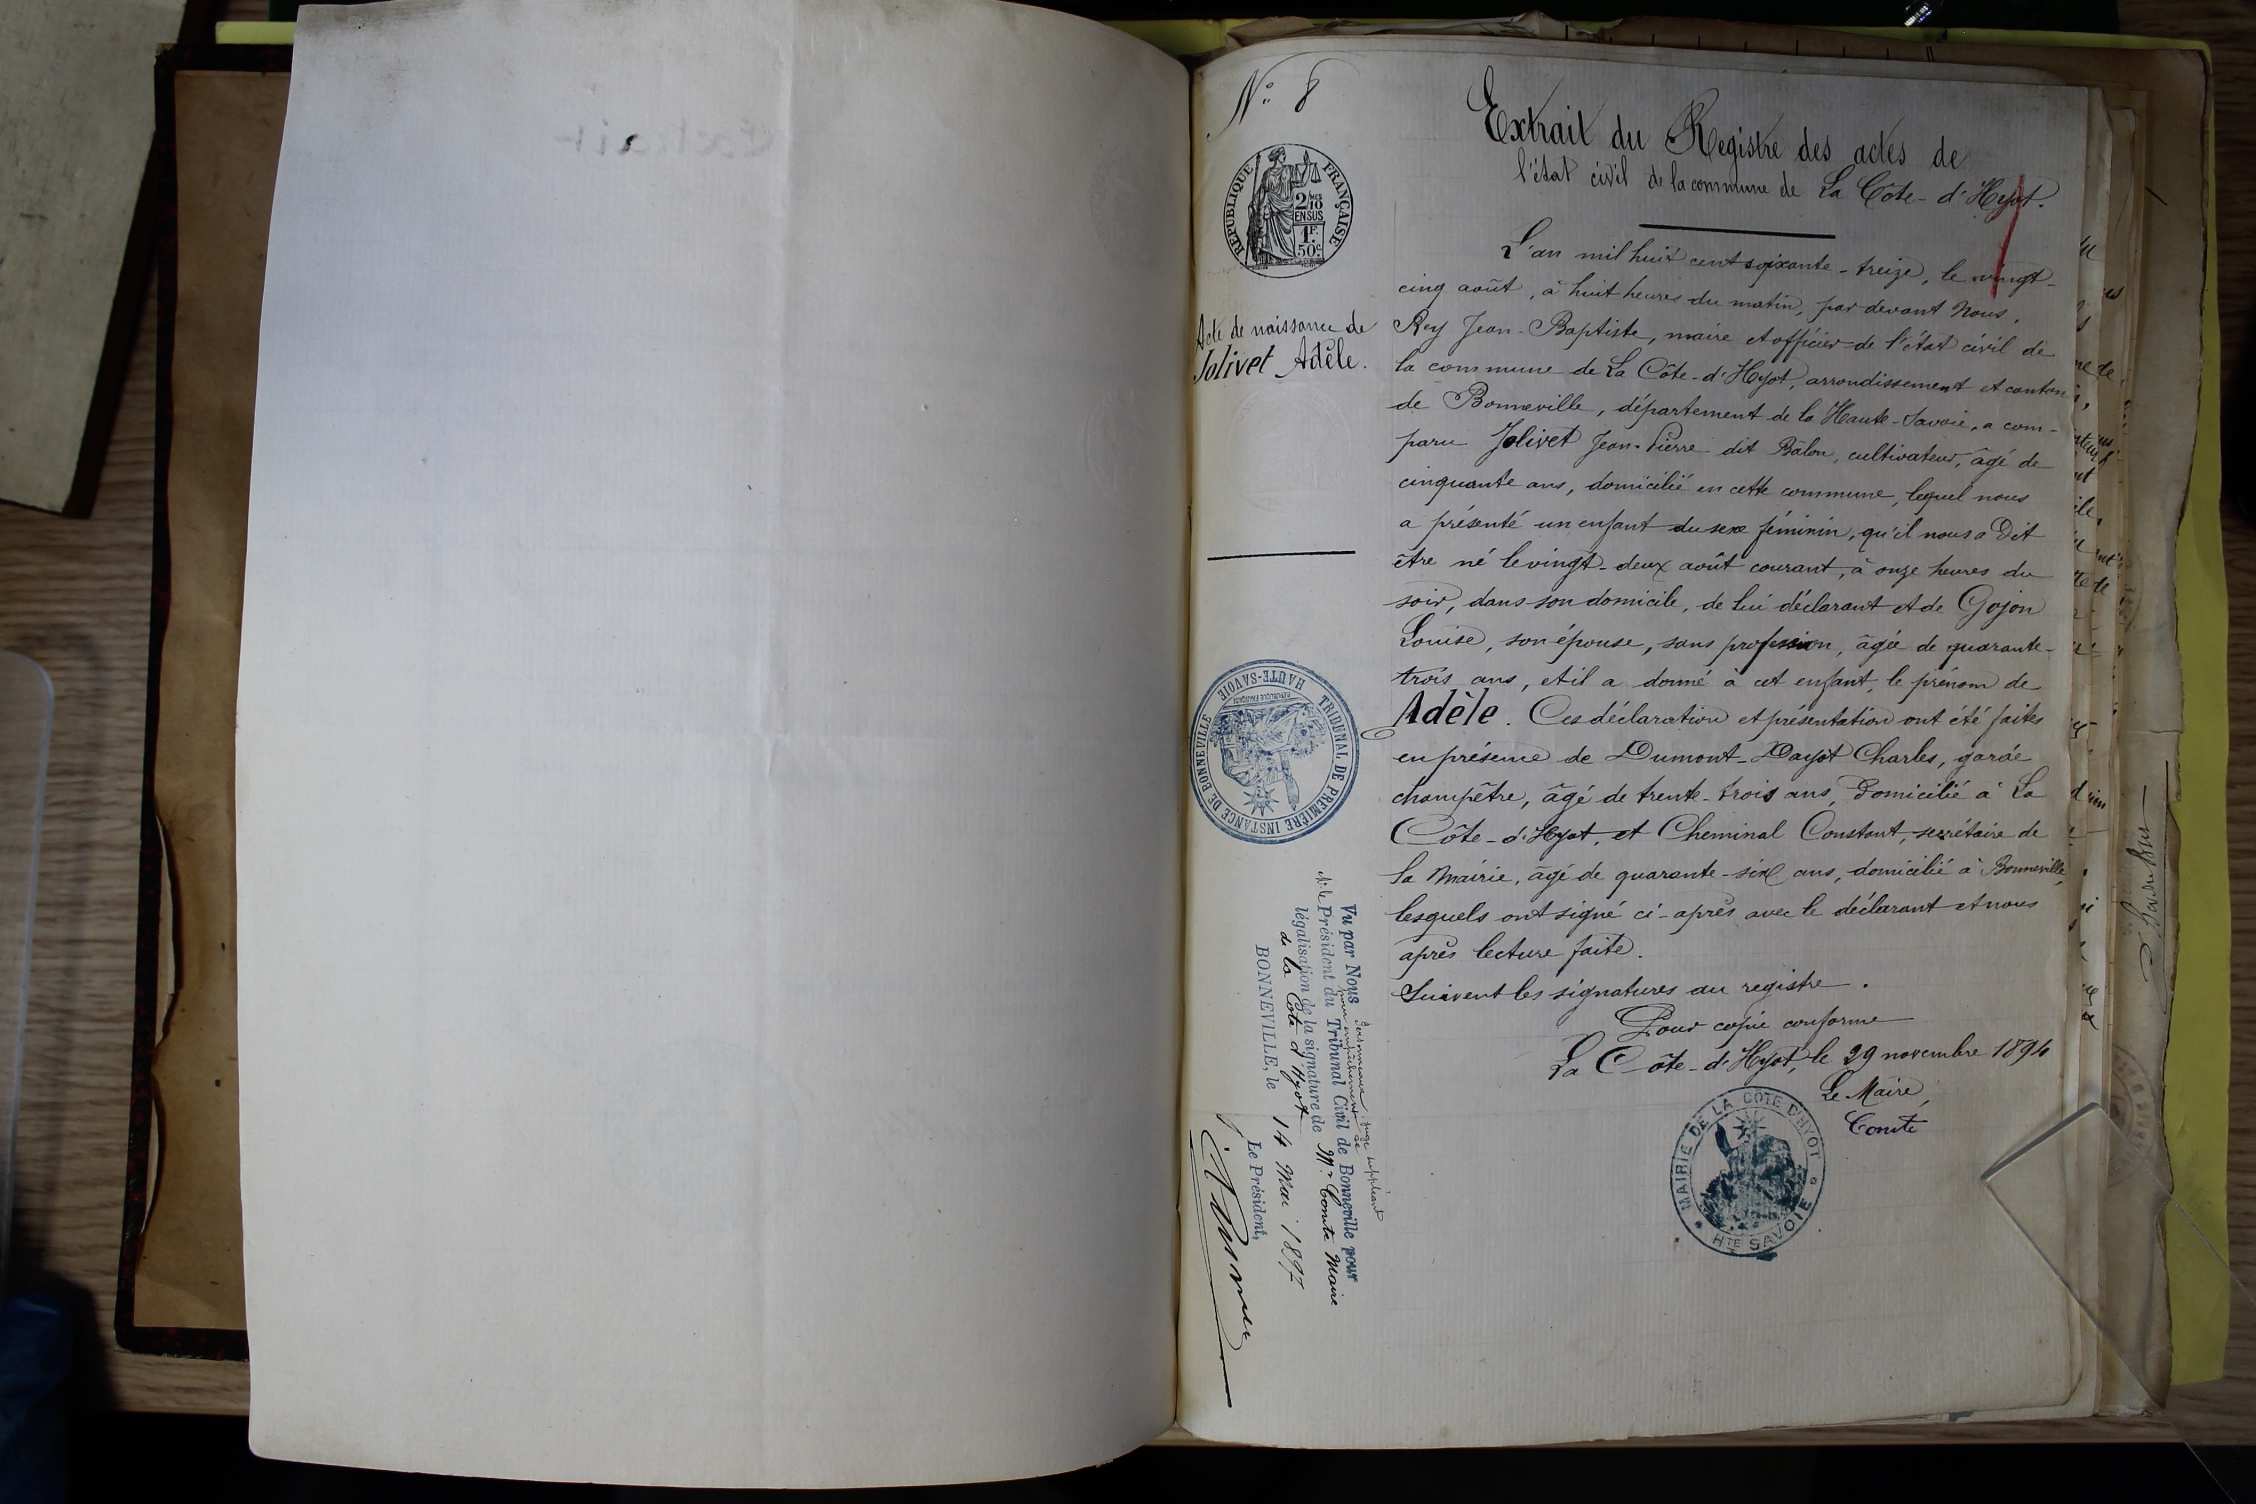 N° 8
RÉPUBLIQUE FRANÇAISE
2/10 EN SUS
1F. 50c.
Acte de naissance de
Jolivet Adèle.
Extrait du Registre des actes de
l'état civil de la commune de La Côte-d'Hyot.
L'an mil huit cent soixante-treize, le vingt-
cinq août, à huit heures du matin, par devant Nous,
Rey Jean-Baptiste, maire et officier de l'état civil de
la commune de La Côte-d'Hyot, arrondissement et canton
de Bonneville, département de la Haute-Savoie, a com-
paru Jolivet Jean-Pierre dit Bâlon, cultivateur, âgé de
cinquante ans, domicilié en cette commune, lequel nous
a présenté un enfant du sexe féminin, qu'il nous a dit
être né le vingt-deux août courant, à onze heures du
soir, dans son domicile, de lui déclarant et de Gojon
Louise, son épouse, sans profession, âgée de quarante-
trois ans, et il a donné à cet enfant, le prénom de
Adèle. Ces déclaration et présentation ont été faites
en présence de Dumont-Dayot Charles, garde
champêtre, âgé de trente-trois ans, domicilié à La
Côte-d'Hyot, et Cheminal Constant, secrétaire de
la Mairie, âgé de quarante-six ans, domicilié à Bonneville,
lesquels ont signé ci-après avec le déclarant et nous
après lecture faite.
Suivent les signatures au registre.
Pour copie conforme
La Côte-d'Hyot, le 29 novembre 1894
Le Maire,
Comte
MAIRIE DE LA CÔTE D'HYOT
HTE SAVOIE
TRIBUNAL DE PREMIÈRE INSTANCE DE BONNEVILLE
HAUTE-SAVOIE
RÉPUBLIQUE FRANÇAISE
juge suppléant
pour empêchement de
Vu par Nous
Mr le Président du Tribunal Civil de Bonneville pour
légalisation de la signature de Mr Comte Maire
de la Côte d'Hyot
BONNEVILLE, le 14 Mai 1897
Le Président,